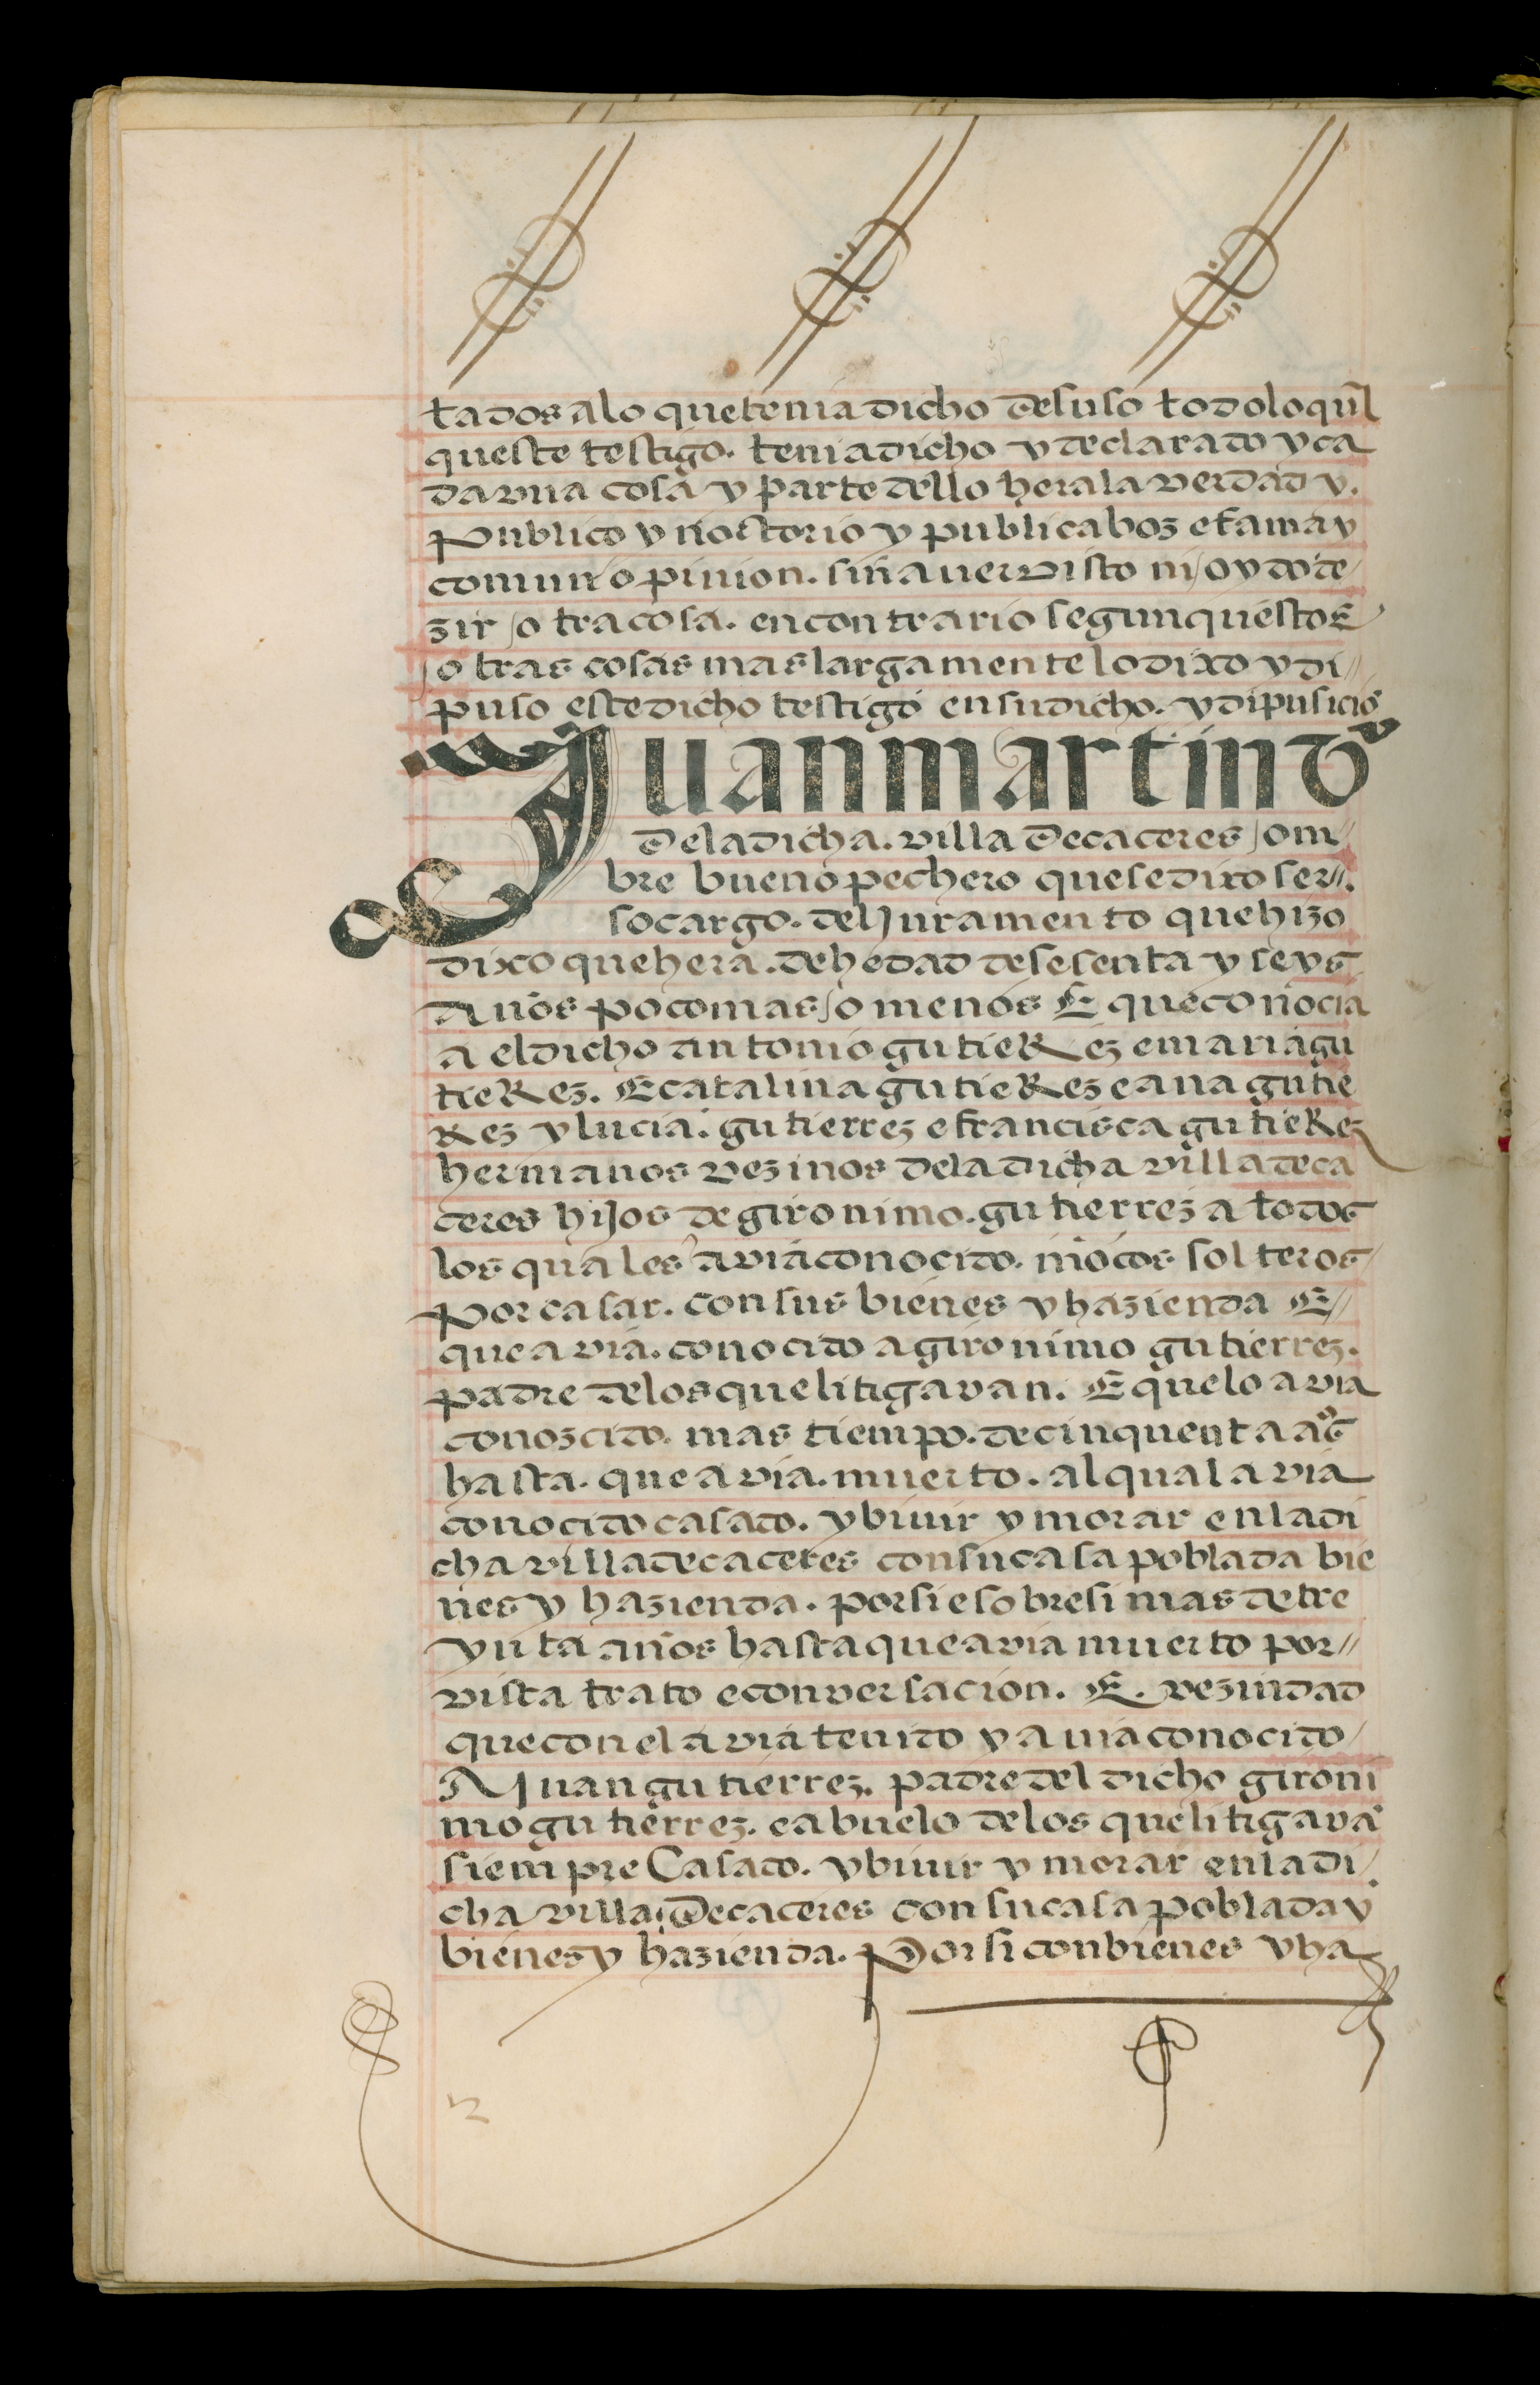 tados alo quetenia dicho desuso todoloqual
queste testigo. teniadicho y declarado y ca
da vna cosa y parte dello hera la verdad y.
publico y noctorio y publica boz e fama y
comun opinion. sin aver visto ni oydo de
zir otra cosa. en contrario segun questos
otras cosas mas largamente lo dixo y di
puso este dicho testigo en su dicho. y dipusicio
Juan martin vº
de la dicha. villa de caceres om
bre bueno pechero que se dixo ser.
so cargo. del Juramento que hizo
dixo que hera. de hedad de sesenta y seys
Años poco mas o menos E que conocia
a el dicho antonio gutieRez e maria gu
tieRez. E catalina gutieRez e ana gutie
Rez y lucia. gutierrez e francisca gutieRez
hermanos vezinos de la dicha villa de ca
ceres hijos de gironimo. gutierrez a todos
los quales avia conocido. moços solteros
por casar. con sus bienes y hazienda E
que avia. conocido a gironimo gutierrez.
padre delos que litigavan. E que lo avia
conozcido. mas tiempo. de cinquenta aºs
hasta. que avia. muerto. al qual avia
conocido casado. y biuir y morar en la di
cha villa de caceres con su casa poblada bie
nes y hazienda. por si e sobre si mas de tre
ynta años hasta que avia muerto por
vista trato e conversacion. E. vezindad
que con el avia tenido y auia conocido
A Juan gutierrez. padre del dicho gironi
mo gutierrez. e abuelo delos que litigava
siempre Casado. y biuir y morar en la di
cha villa de caceres con su casa poblada y
bienes y hazienda. Por si con bienes y ha